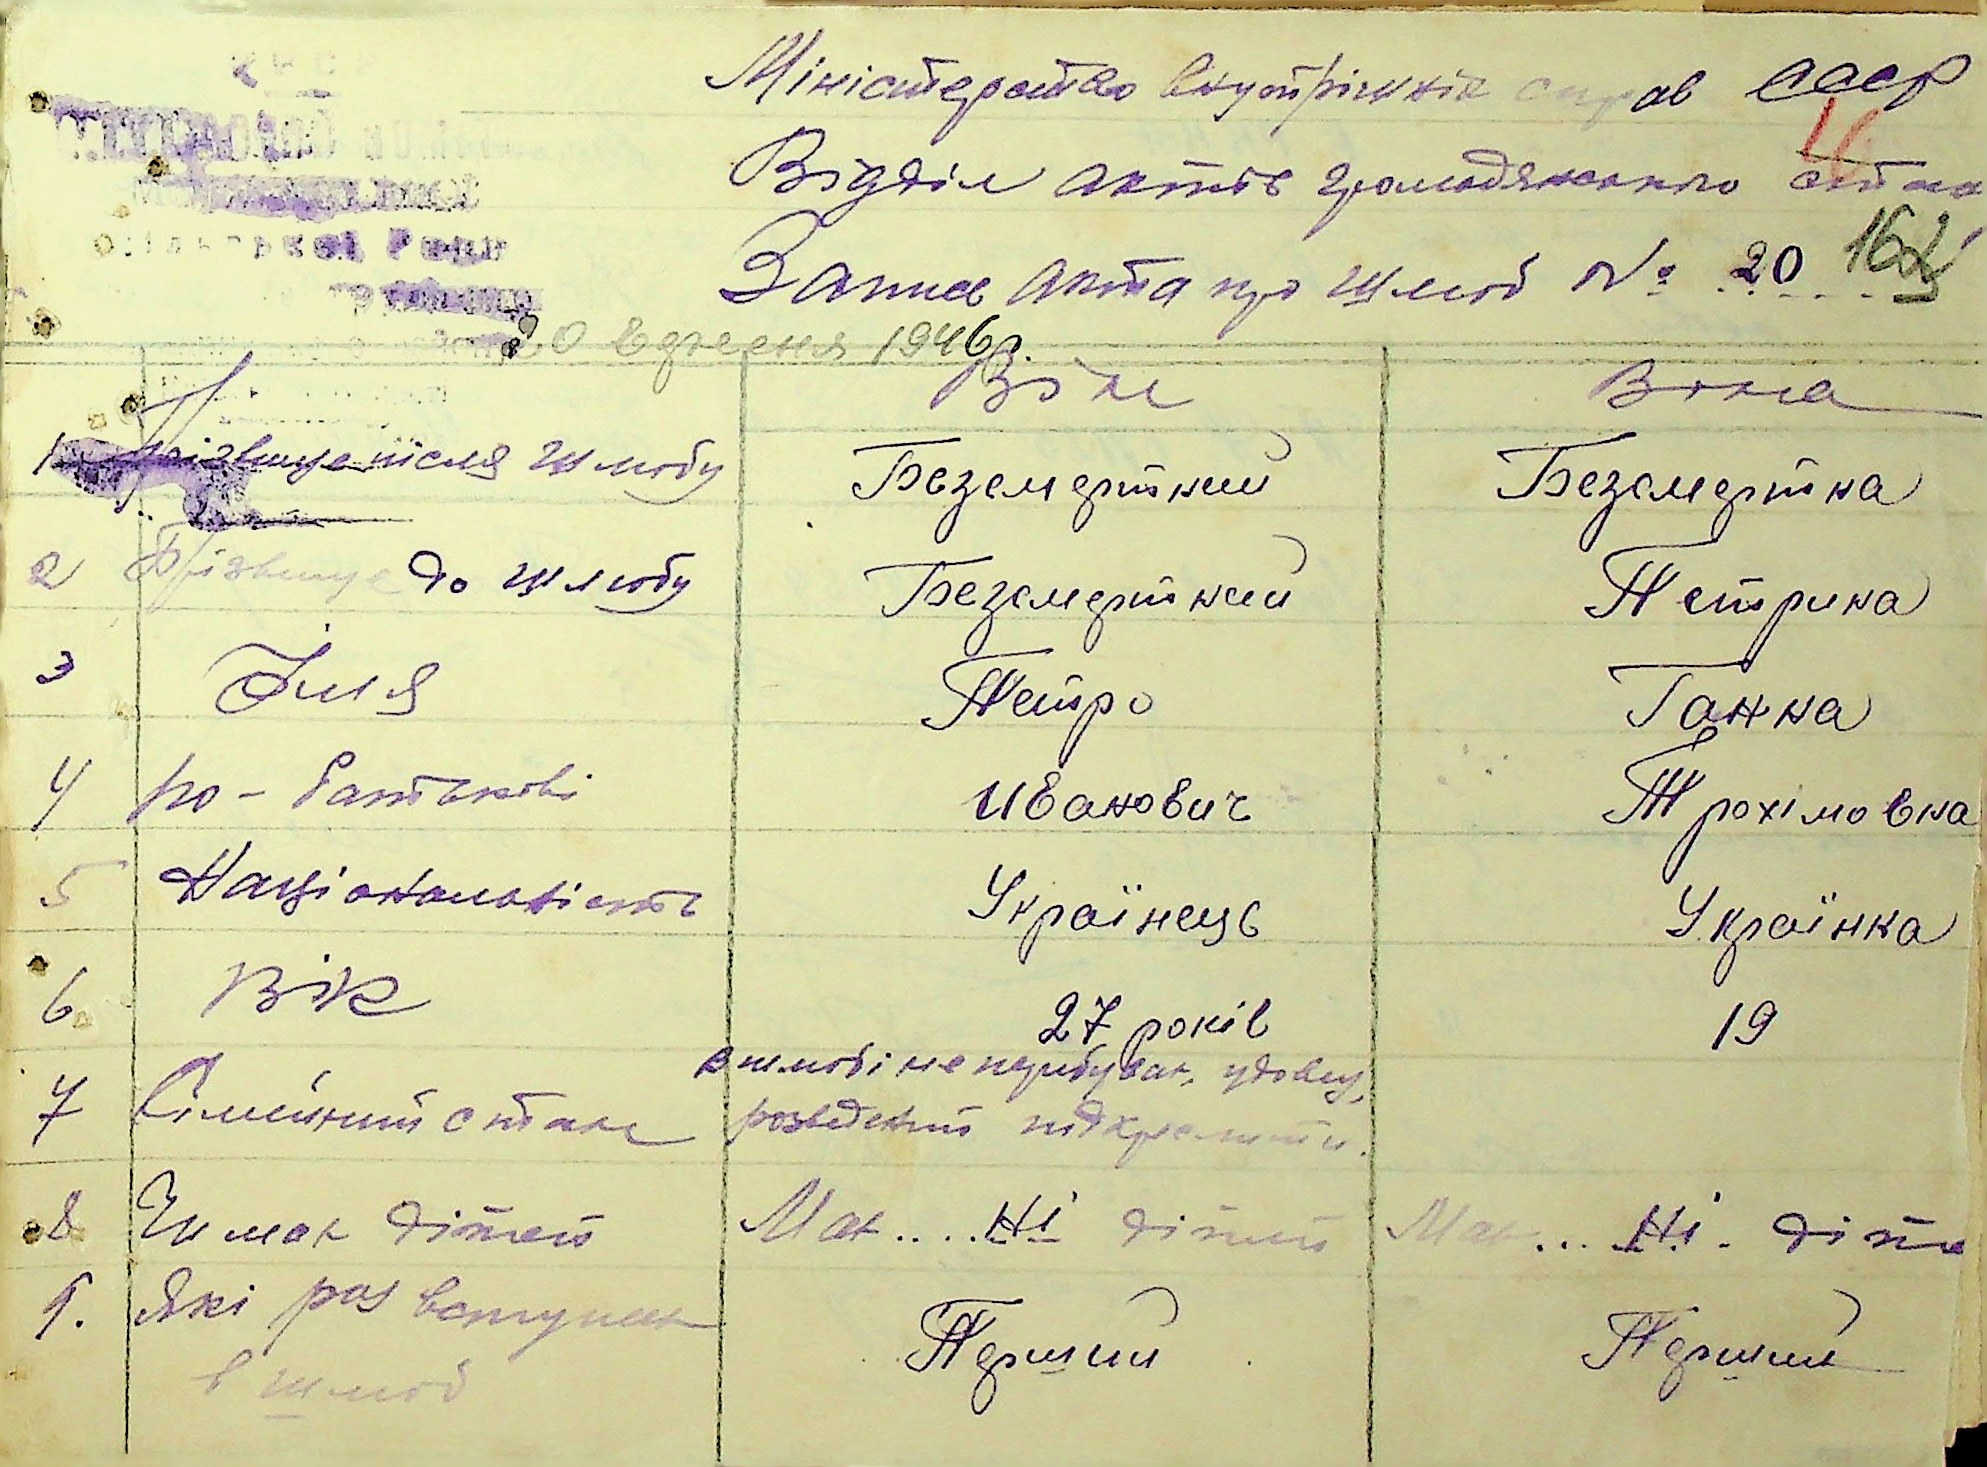 Міністерство внутрішніх справ СССР
Відділ актів громадянського стана
16
Запис акта про шлюб № 20 16
20 вересня 1946 р.
Він Вона
1 Прізвище після шлюбу Безсмертний Безсмертна
2 Прізвище до шлюбу Безсмертний Петрина
3 Імя Петро Ганна
4 по-батькові Иванович Трохімовна
5 Національність Українець Українка
6 Вік 27 років 19
7 Сімейний стан в шлюбі не перебував, удовец,
розведений підкреслити.
8 Чи має дітей Має .... Ні дітей Має ... Ні. діте
9. Які раз вступает Перший Перший
в шлюб